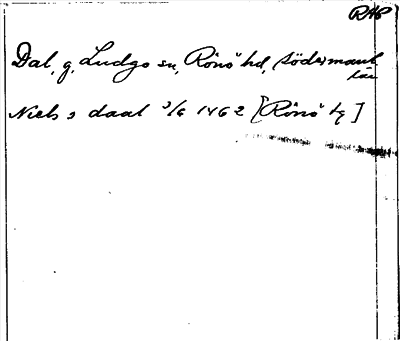 RAP
Dal, g, Ludgo sn, Rönö hd, Södermanl
län
Niels s daal 3/6 1462 [Rönö hg]